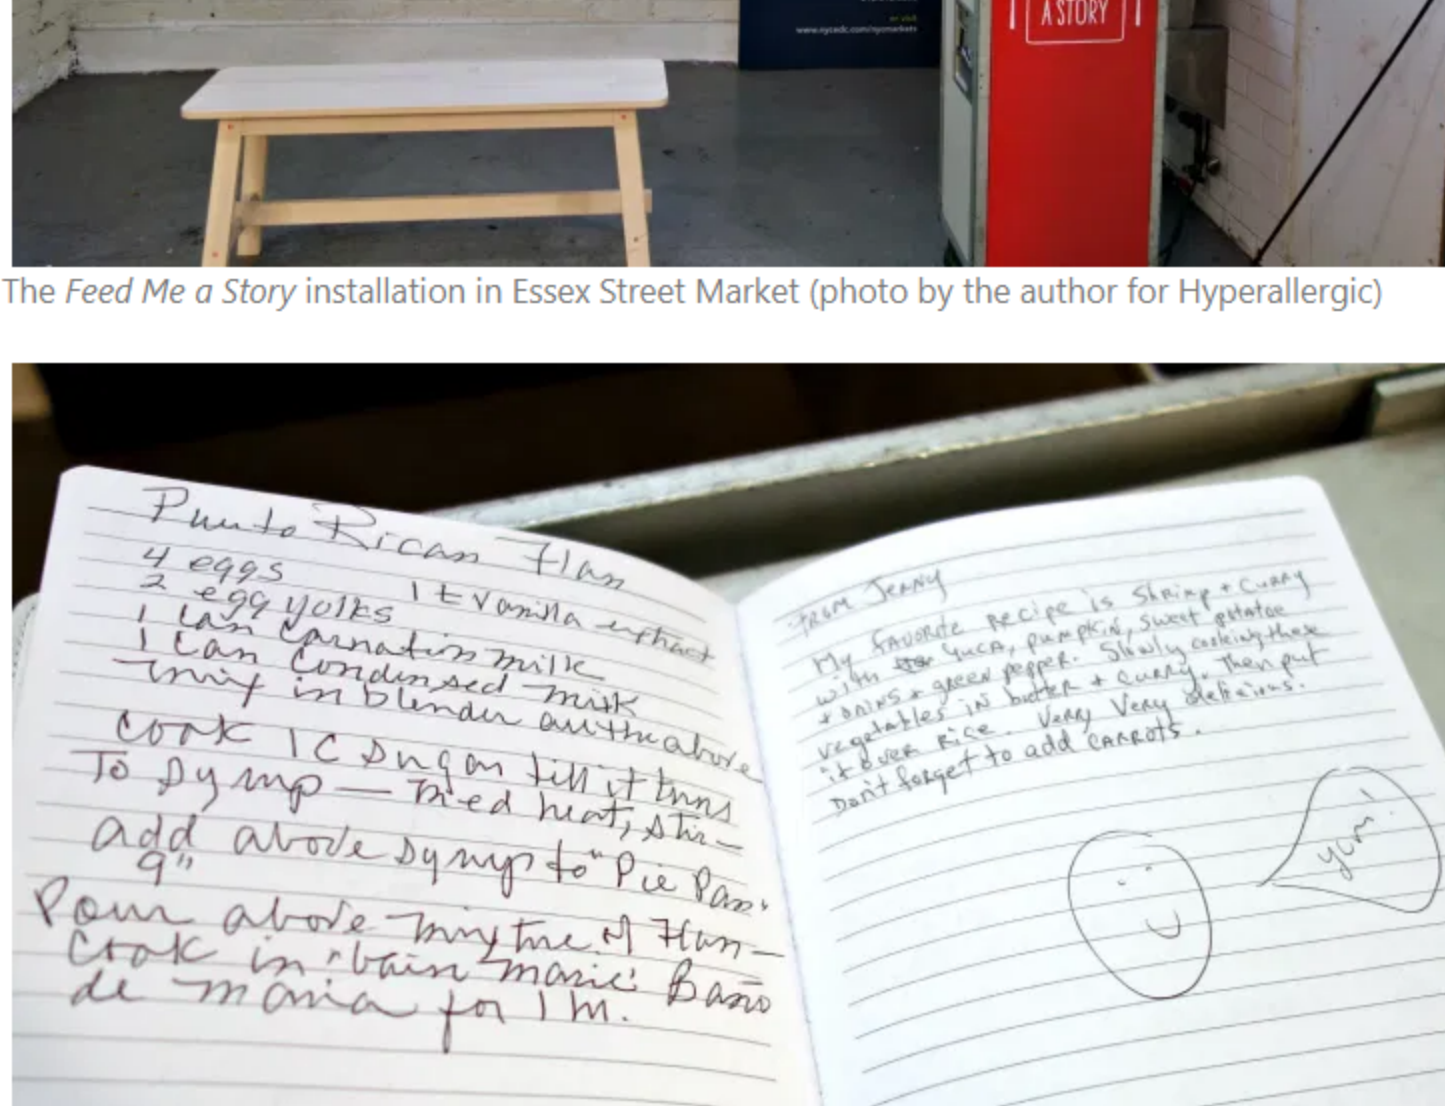 or visit
www.nycedc.com/nycmarkets
A STORY
The Feed Me a Story installation in Essex Street Market (photo by the author for Hyperallergic)
Puerto Rican Flan
4 eggs
2 egg yolks
1 t vanilla extract
1 can Carnation milk
1 can condensed milk
mix in blender all the above
Cook 1 C sugar till it turns
To syrup — med heat, stir —
add above syrup to "Pie Pan"
9"
Pour above mixture of Flan —
Cook in "bain marie" Baño
de maria for 1 hr.
From Jenny
My favorite recipe is shrimp + curry
with yuca, pumpkin, sweet potatoe
+ onins + green pepper. Slowly cooking these
vegetables in butter + curry. Then put
it over rice. Very Very delicious.
Don't forget to add CARROTS.
yum!